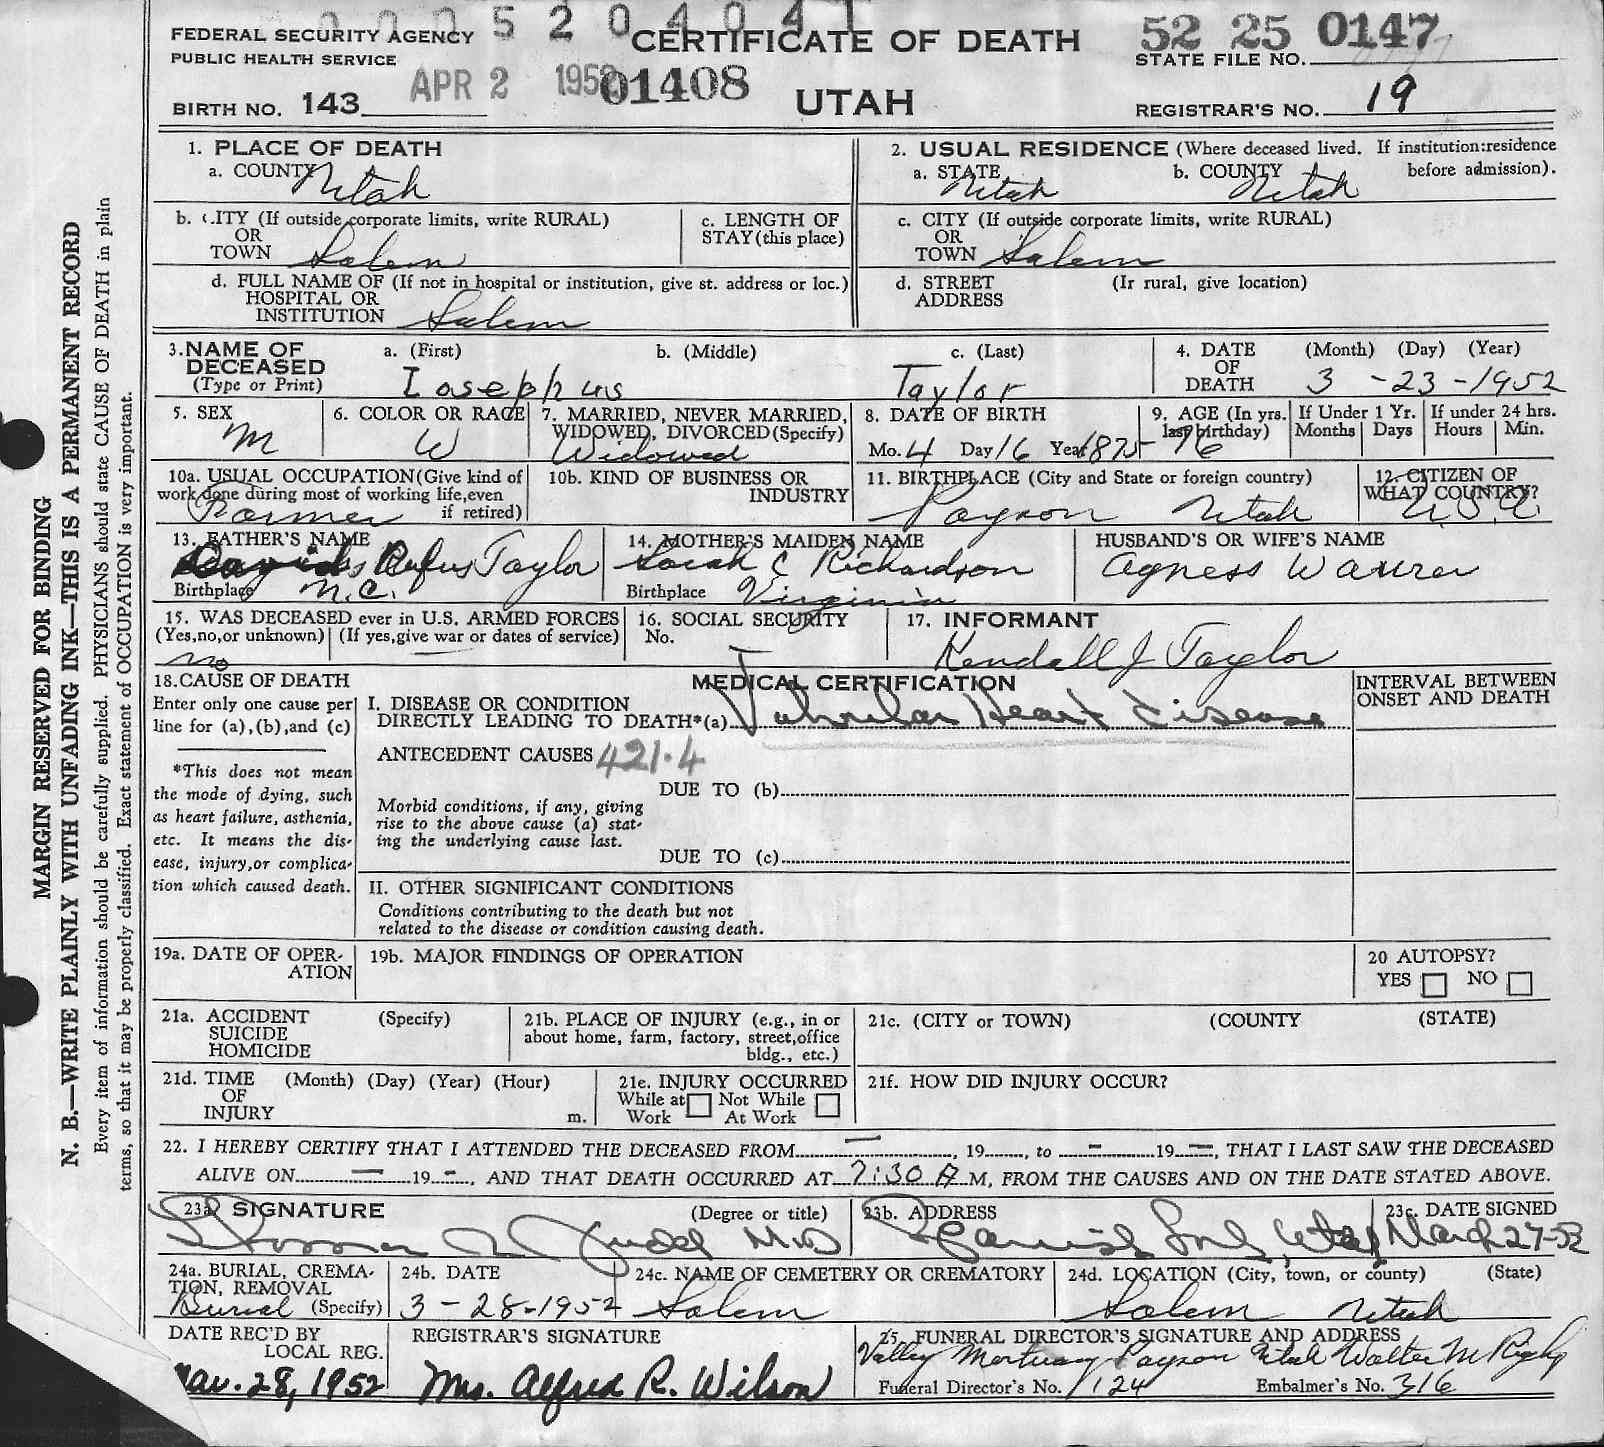 0005204041
FEDERAL SECURITY AGENCY CERTIFICATE OF DEATH 52 25 0147
PUBLIC HEALTH SERVICE STATE FILE NO.
APR 2 1952 01408
BIRTH NO. 143 UTAH REGISTRAR'S NO. 19
1. PLACE OF DEATH
a. COUNTY Utah
2. USUAL RESIDENCE (Where deceased lived. If institution:residence before admission).
a. STATE Utah b. COUNTY Utah
b. CITY (If outside corporate limits, write RURAL)
OR
TOWN Salem
c. LENGTH OF
STAY (this place)
c. CITY (If outside corporate limits, write RURAL)
OR
TOWN Salem
d. FULL NAME OF (If not in hospital or institution, give st. address or loc.)
HOSPITAL OR
INSTITUTION Salem
d. STREET (Ir rural, give location)
ADDRESS
3. NAME OF DECEASED a. (First) b. (Middle) c. (Last)
(Type or Print) Iosephus Taylor
4. DATE OF DEATH (Month) (Day) (Year)
3 -23-1952
5. SEX M
6. COLOR OR RACE W
7. MARRIED, NEVER MARRIED,
WIDOWED, DIVORCED (Specify)
Widowed
8. DATE OF BIRTH
Mo. 4 Day 16 Year 1875
9. AGE (In yrs. last birthday) 76
If Under 1 Yr. Months Days
If under 24 hrs. Hours Min.
10a. USUAL OCCUPATION (Give kind of
work done during most of working life, even
if retired) Farmer
10b. KIND OF BUSINESS OR
INDUSTRY
11. BIRTHPLACE (City and State or foreign country)
Payson Utah
12. CITIZEN OF
WHAT COUNTRY?
U.S.A.
13. FATHER'S NAME
Rufus Taylor
Birthplace N.C.
14. MOTHER'S MAIDEN NAME
Sarah C Richardson
Birthplace Virginia
HUSBAND'S OR WIFE'S NAME
Agness
15. WAS DECEASED ever in U.S. ARMED FORCES
(Yes,no,or unknown) (If yes,give war or dates of service)
no
16. SOCIAL SECURITY
No.
17. INFORMANT
Kendall J Taylor
18. CAUSE OF DEATH
Enter only one cause per
line for (a),(b),and (c)
*This does not mean
the mode of dying, such
as heart failure, asthenia,
etc. It means the dis-
ease, injury,or complica-
tion which caused death.
MEDICAL CERTIFICATION
I. DISEASE OR CONDITION
DIRECTLY LEADING TO DEATH*(a) Valvular Heart Disease
ANTECEDENT CAUSES 421.4
DUE TO (b)
Morbid conditions, if any, giving
rise to the above cause (a) stat-
ing the underlying cause last.
DUE TO (c)
II. OTHER SIGNIFICANT CONDITIONS
Conditions contributing to the death but not
related to the disease or condition causing death.
INTERVAL BETWEEN
ONSET AND DEATH
19a. DATE OF OPER-
ATION
19b. MAJOR FINDINGS OF OPERATION
20 AUTOPSY?
YES NO
21a. ACCIDENT (Specify)
SUICIDE
HOMICIDE
21b. PLACE OF INJURY (e.g., in or
about home, farm, factory, street,office
bldg., etc.)
21c. (CITY or TOWN) (COUNTY (STATE)
21d. TIME (Month) (Day) (Year) (Hour)
OF
INJURY m.
21e. INJURY OCCURRED
While at Work Not While At Work
21f. HOW DID INJURY OCCUR?
22. I HEREBY CERTIFY THAT I ATTENDED THE DECEASED FROM — , 19 , to — 19 —, THAT I LAST SAW THE DECEASED
ALIVE ON — 19 —, AND THAT DEATH OCCURRED AT 7:30 A M, FROM THE CAUSES AND ON THE DATE STATED ABOVE.
23a SIGNATURE (Degree or title)
Judd MD
23b. ADDRESS
Spanish Fork, Utah
23c. DATE SIGNED
March 27-52
24a. BURIAL, CREMA-
TION, REMOVAL
Burial (Specify)
24b. DATE
3-28-1952
24c. NAME OF CEMETERY OR CREMATORY
Salem
24d. LOCATION (City, town, or county) (State)
Salem Utah
DATE REC'D BY
LOCAL REG.
Mar. 28, 1952
REGISTRAR'S SIGNATURE
Mrs. Alfred R. Wilson
25. FUNERAL DIRECTOR'S SIGNATURE AND ADDRESS
Valley Mortuary Payson Utah Walter M Rigby
Funeral Director's No. 1124 Embalmer's No. 316
MARGIN RESERVED FOR BINDING
N. B.—WRITE PLAINLY WITH UNFADING INK—THIS IS A PERMANENT RECORD
Every item of information should be carefully supplied. PHYSICIANS should state CAUSE OF DEATH in plain
terms, so that it may be properly classified. Exact statement of OCCUPATION is very important.